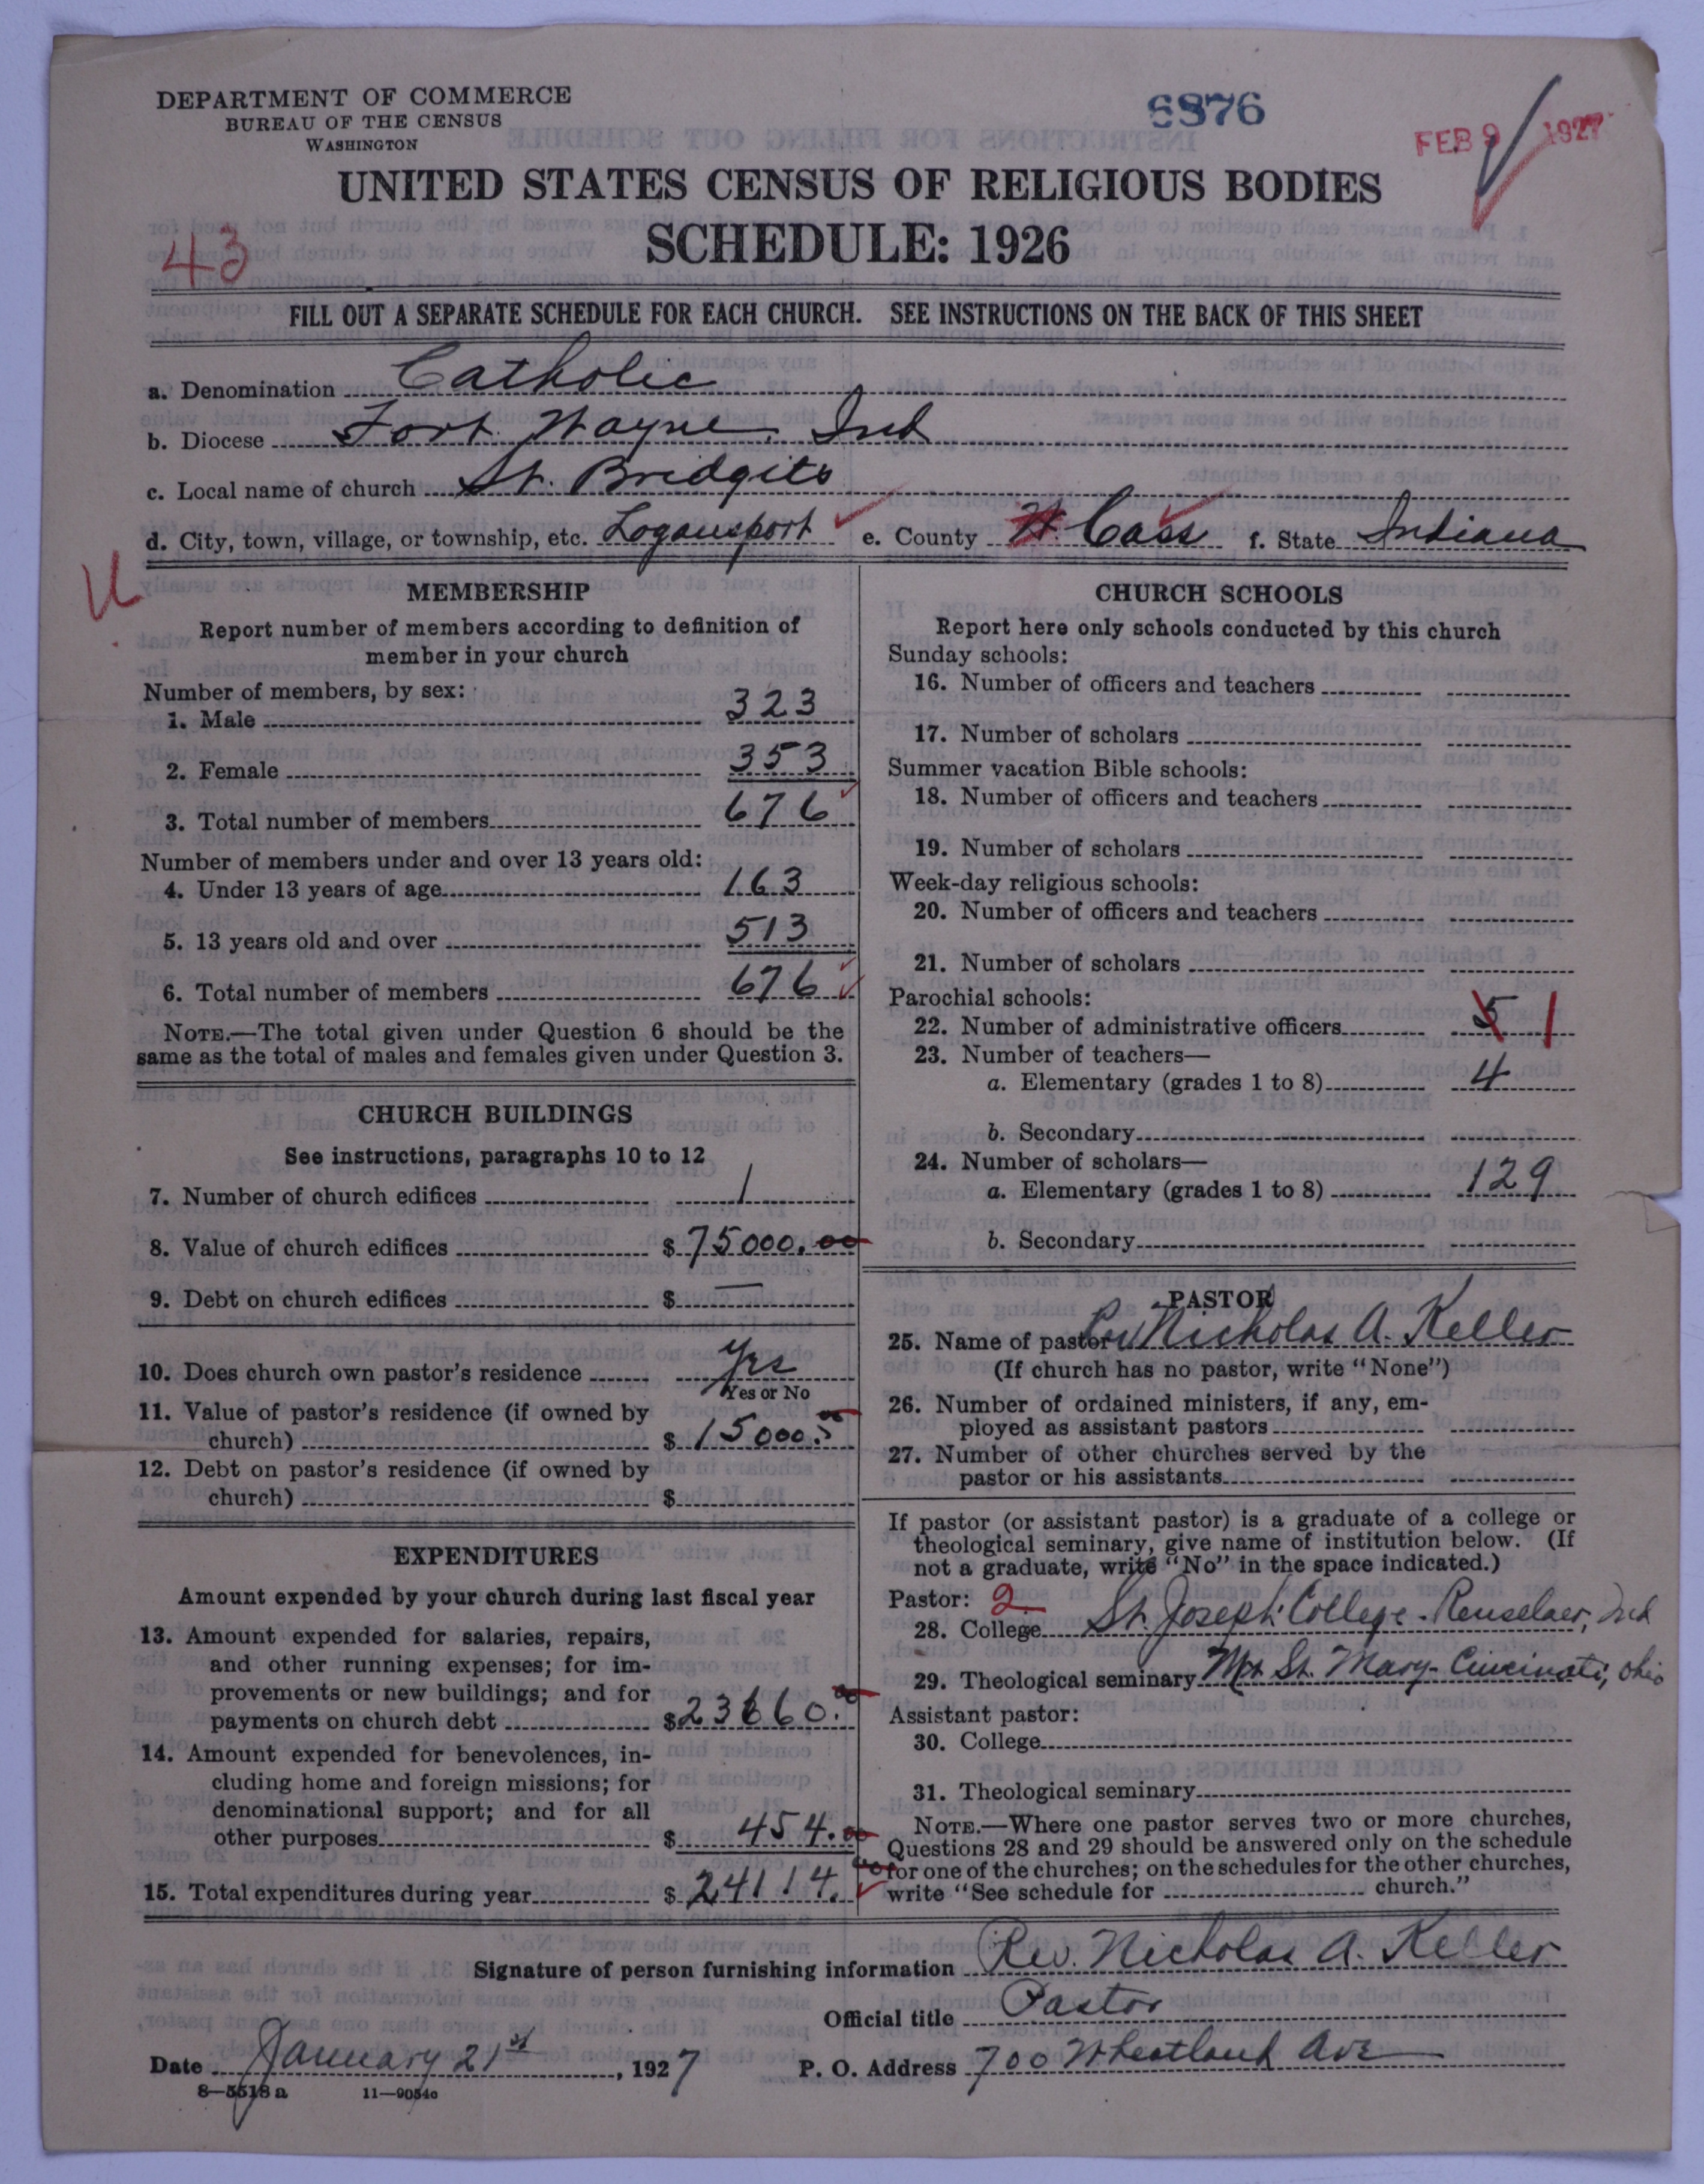 DEPARTMENT OF COMMERCE
BUREAU OF THE CENSUS
WASHINGTON
6876
FEB 9 1927
UNITED STATES CENSUS OF RELIGIOUS BODIES
SCHEDULE: 1926
43
FILL OUT A SEPARATE SCHEDULE FOR EACH CHURCH. SEE INSTRUCTIONS ON THE BACK OF THIS SHEET
a. Denomination Catholic
b. Diocese Fort Wayne, Ind
c. Local name of church St. Bridgits
d. City, town, village, or township, etc. Logansport e. County Cass f. State Indiana
U
MEMBERSHIP
Report number of members according to definition of
member in your church
Number of members, by sex:
1. Male 323
2. Female 353
3. Total number of members 676
Number of members under and over 13 years old:
4. Under 13 years of age 163
5. 13 years old and over 513
6. Total number of members 676
NOTE.—The total given under Question 6 should be the
same as the total of males and females given under Question 3.
CHURCH BUILDINGS
See instructions, paragraphs 10 to 12
7. Number of church edifices 1
8. Value of church edifices $75000.00
9. Debt on church edifices $ —
10. Does church own pastor's residence Yes
Yes or No
11. Value of pastor's residence (if owned by
church) $15000.00
12. Debt on pastor's residence (if owned by
church) $
EXPENDITURES
Amount expended by your church during last fiscal year
13. Amount expended for salaries, repairs,
and other running expenses; for im-
provements or new buildings; and for
payments on church debt $23660.00
14. Amount expended for benevolences, in-
cluding home and foreign missions; for
denominational support; and for all
other purposes $454.00
15. Total expenditures during year $24114.00
CHURCH SCHOOLS
Report here only schools conducted by this church
Sunday schools:
16. Number of officers and teachers
17. Number of scholars
Summer vacation Bible schools:
18. Number of officers and teachers
19. Number of scholars
Week-day religious schools:
20. Number of officers and teachers
21. Number of scholars
Parochial schools:
22. Number of administrative officers 5 1
23. Number of teachers—
a. Elementary (grades 1 to 8) 4
b. Secondary
24. Number of scholars—
a. Elementary (grades 1 to 8) 129
b. Secondary
PASTOR
25. Name of pastor Rev Nicholas A. Keller
(If church has no pastor, write "None")
26. Number of ordained ministers, if any, em-
ployed as assistant pastors
27. Number of other churches served by the
pastor or his assistants
If pastor (or assistant pastor) is a graduate of a college or
theological seminary, give name of institution below. (If
not a graduate, write "No" in the space indicated.)
Pastor: 2
28. College St. Joseph College - Renselaer, Ind
29. Theological seminary Mt St. Mary - Cincinnati, Ohio
Assistant pastor:
30. College
31. Theological seminary
NOTE.—Where one pastor serves two or more churches,
Questions 28 and 29 should be answered only on the schedule
for one of the churches; on the schedules for the other churches,
write "See schedule for church."
Signature of person furnishing information Rev. Nicholas A. Keller
Official title Pastor
Date January 21st, 1927 P. O. Address 700 Wheatland Ave
8—5518 a 11—9054c